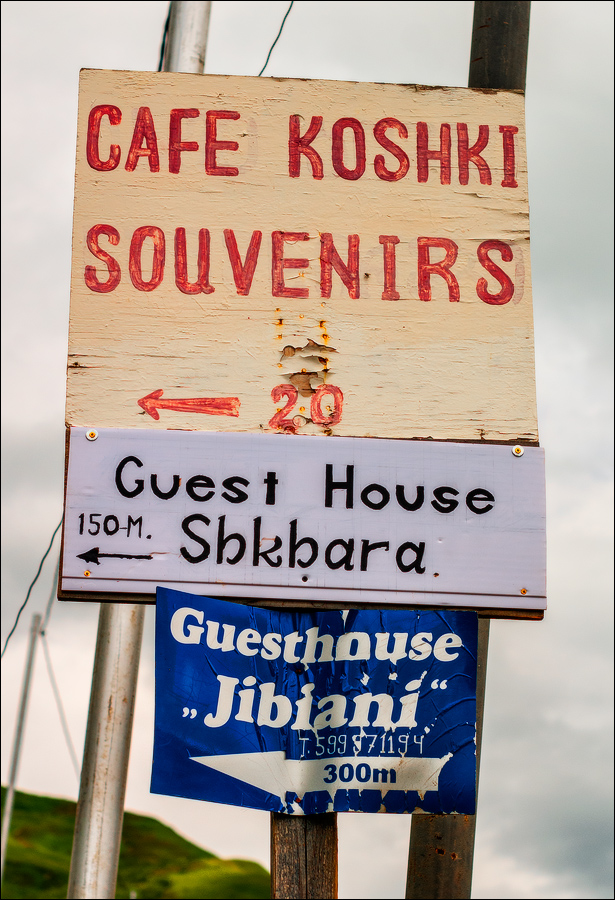 CAFE KOSHKI
SOUVENIRS
← 20
Guest House
150-M. Sbkbara.
←
Guesthouse
„Jibiani“
T.599971194
300m